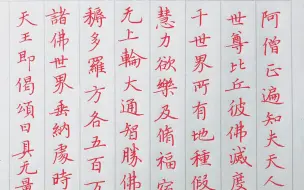 阿僧正遍知夫天人
世尊比丘彼佛滅度
千世界所有地種假
慧力欲樂及脩福宿
无上輪大通智勝佛
稱多羅方各五百万
諸佛世界垂納處時
天王即偈頌曰具无量